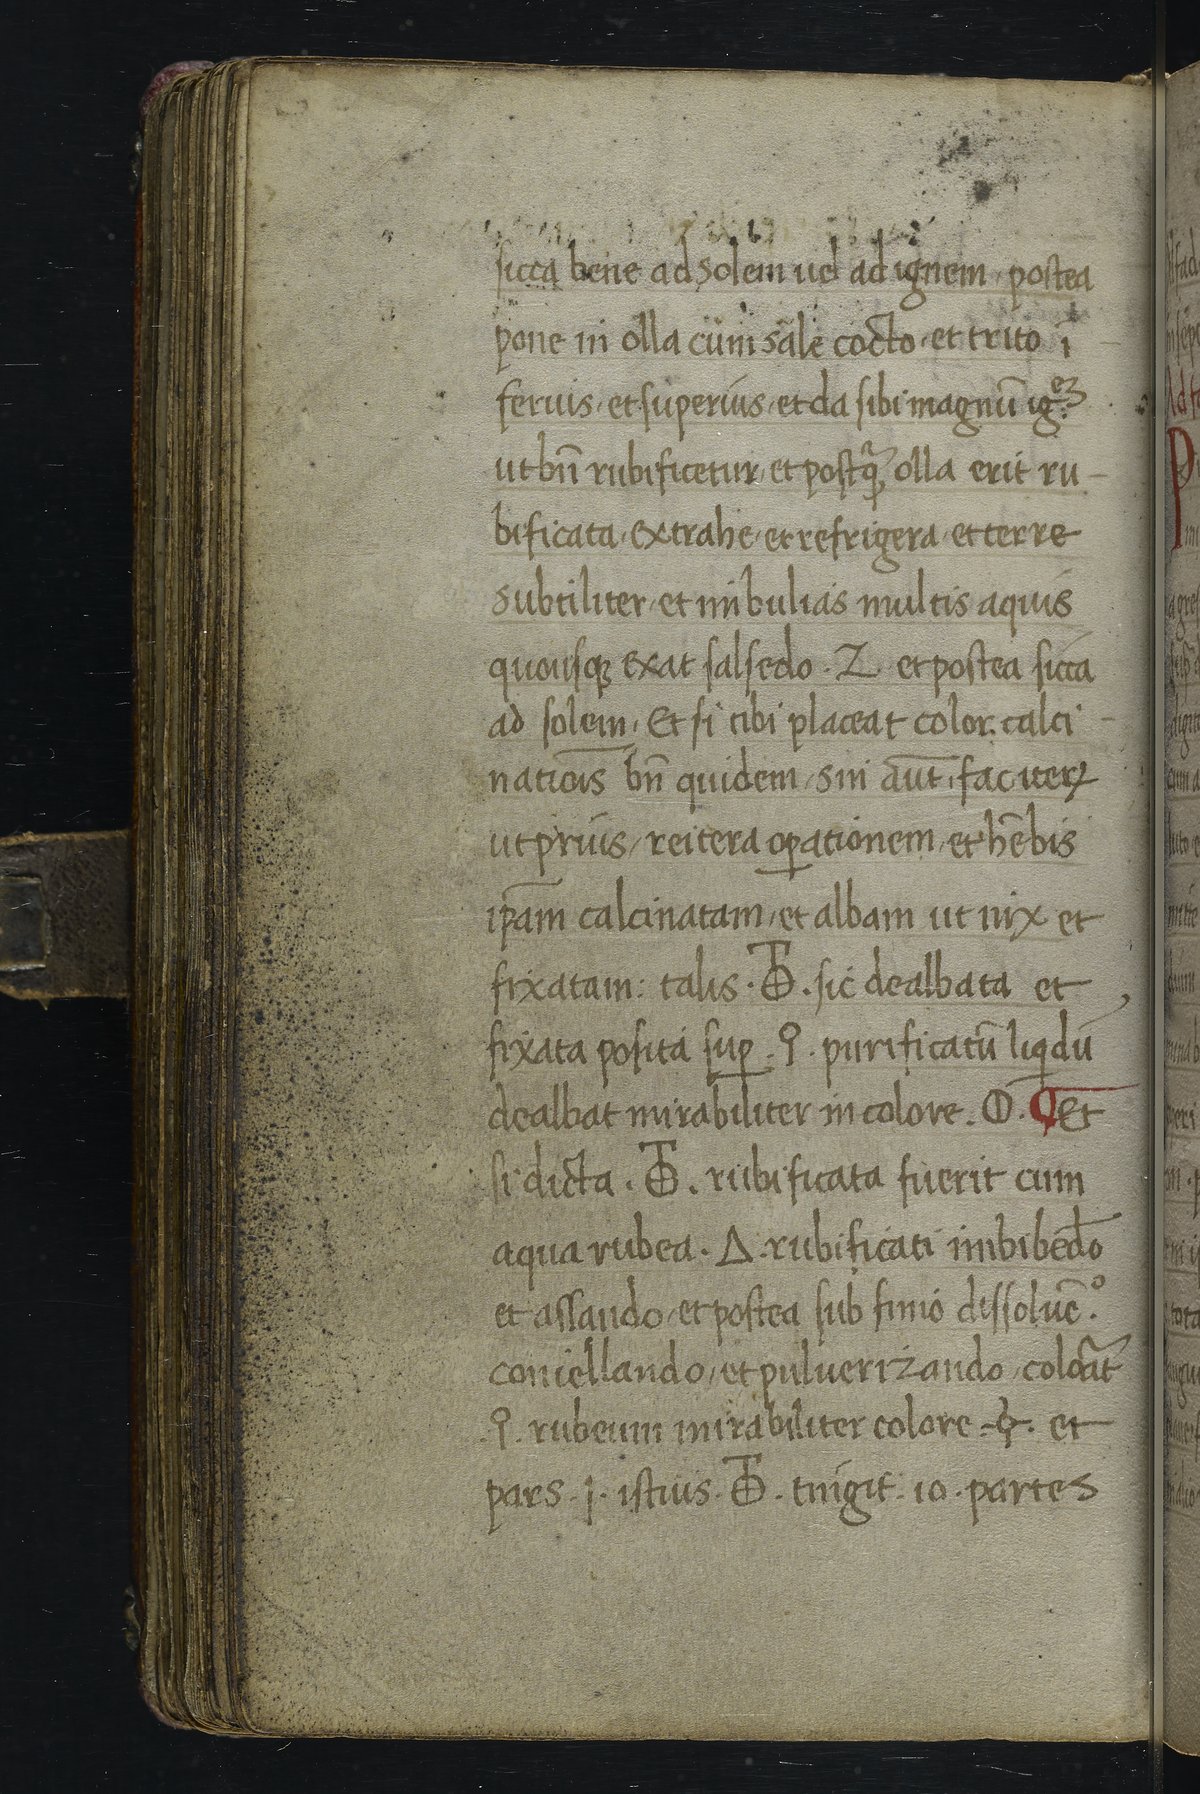 sicca bene ad solem uel ad ignem, postea
pone in olla cum sale cocto, et trito ī
ferius, et superius, et da sibi magnū ig.eʒ
ut bn̄ rubificetur, et postq̄ olla erit ru-
bificata, extrahe, et refrigera, et terre
subtiliter, et in bulias multis aquis
quousqꝫ exat salsedo. Z et postea sicca
ad solem, Et si tibi placeat color calci-
natiōis bn̄ quidem, sin aūt, fac iteꝝ
ut prius, reitera oꝑationem, et hēbis
ip̄am calcinatam, et albam ut nix et
fixatam: talis. . sic dealbata et
fixata posita suꝑ . purificatū liqdū
dealbat mirabiliter in colore. . Et
si dicta . . rubificata fuerit cum
aqua rubea. Δ. rubificati imbibēdo
et assando, et postea sub fimo dissoluē.º
coniellando, et puluerizando, coloāt
. rubeum mirabiliter colore . et
pars . j. istius. . tingit. 10. partes